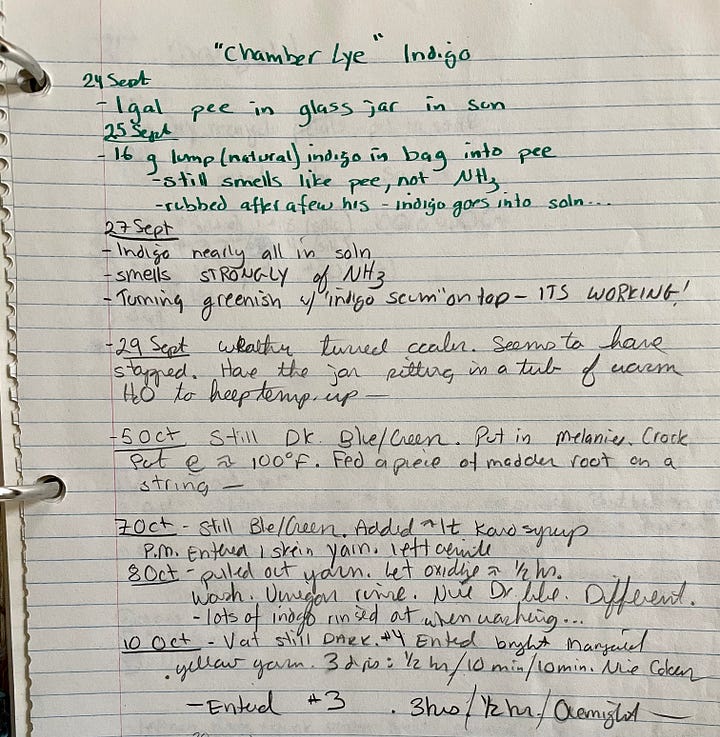 "Chamber Lye" Indigo
24 Sept
- 1gal pee in glass jar in sun
25 Sept
- 16 g lump (natural) indigo in bag into pee
-still smells like pee, not NH3
-rubbed after a few hrs - indigo goes into soln...
27 Sept
- Indigo nearly all in soln
- smells STRONGLY of NH3
- Turning greenish w/ "indigo scum" on top - ITS WORKING!
- 29 Sept weather turned cooler. Seems to have
stopped. Have the jar sitting in a tub of warm
H2O to keep temp. up —
- 5 Oct Still Dk. Blue/Green. Put in Melanies Crock
Pot @ ≈ 100°F. Fed a piece of madder root on a
string —
7 Oct - Still Ble/Green. Added ~1t Karo syrup
P.M. Entered 1 skein yarn. Left
8 Oct - pulled out yarn. Let oxidize ≈ 1/2 hr.
Wash. Vinegar rinse. Nice Dr. blue. Different.
- lots of indigo rinsed out when washing...
10 Oct - Vat still DARK. #4 Entered bright
yellow yarn. 3 dips: 1/2 hr/10 min/10min. Nice
- Entered #3 . 3hrs/1/2 hr/Overnight —